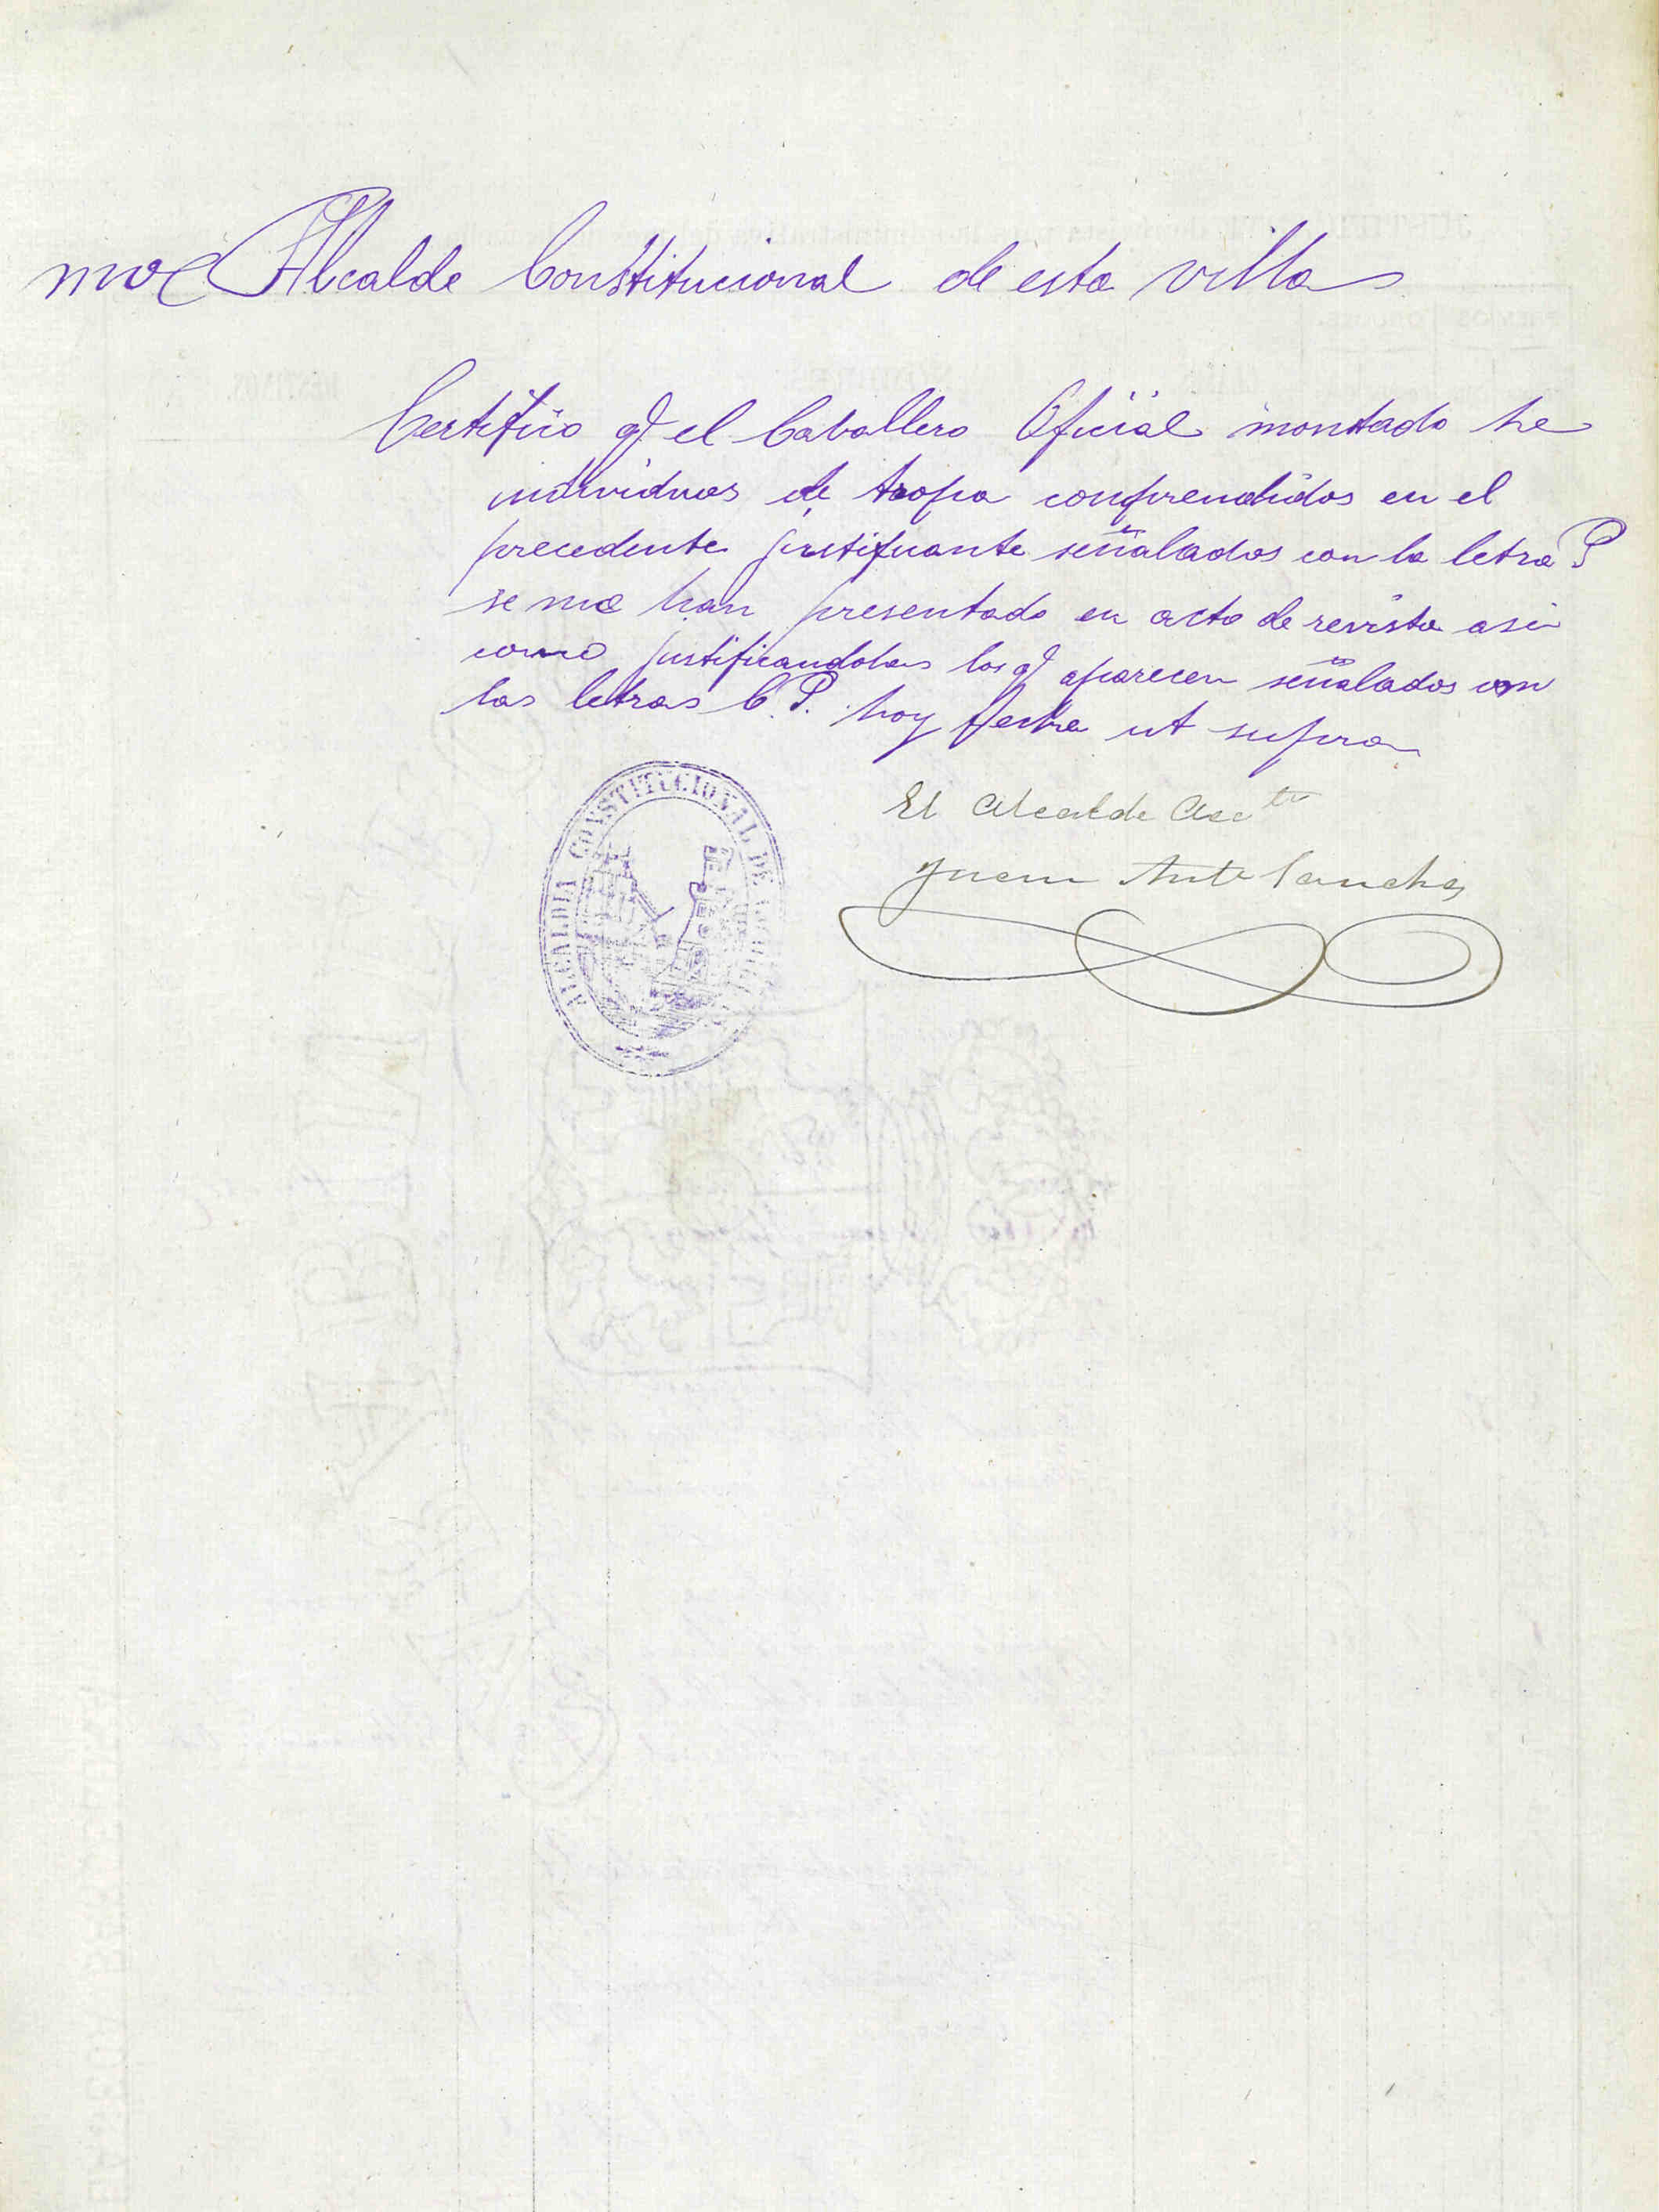 Alcalde Constitucional de esta villa
Certifico q͞ el Caballero Oficial montado he
individuos de tropa comprendidos en el
precedente justificante señalados con la letra P
se me han presentado en acto de revista asi
como justificandolas los q͞ aparecen señalados con
las letras C. P. hoy fecha ut supra
El Alcalde Acc
Juan Ante Sanchez
ALCALDIA CONSTITUCIONAL DE